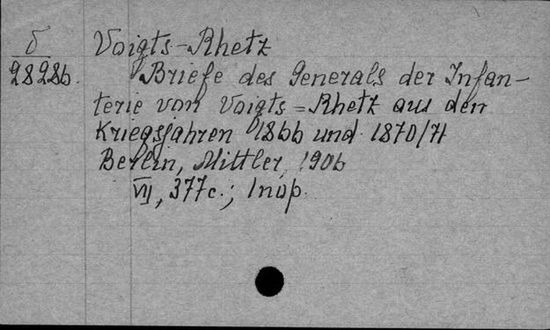 б Voigts-Rhetz
28286. Briefe des Generals der Infan-
terie von Voigts=Rhetz aus den
Kriegsjahren 1866 und 1870/71
Berlin, Mittler, 1906
VII, 377c.; 1 пор.